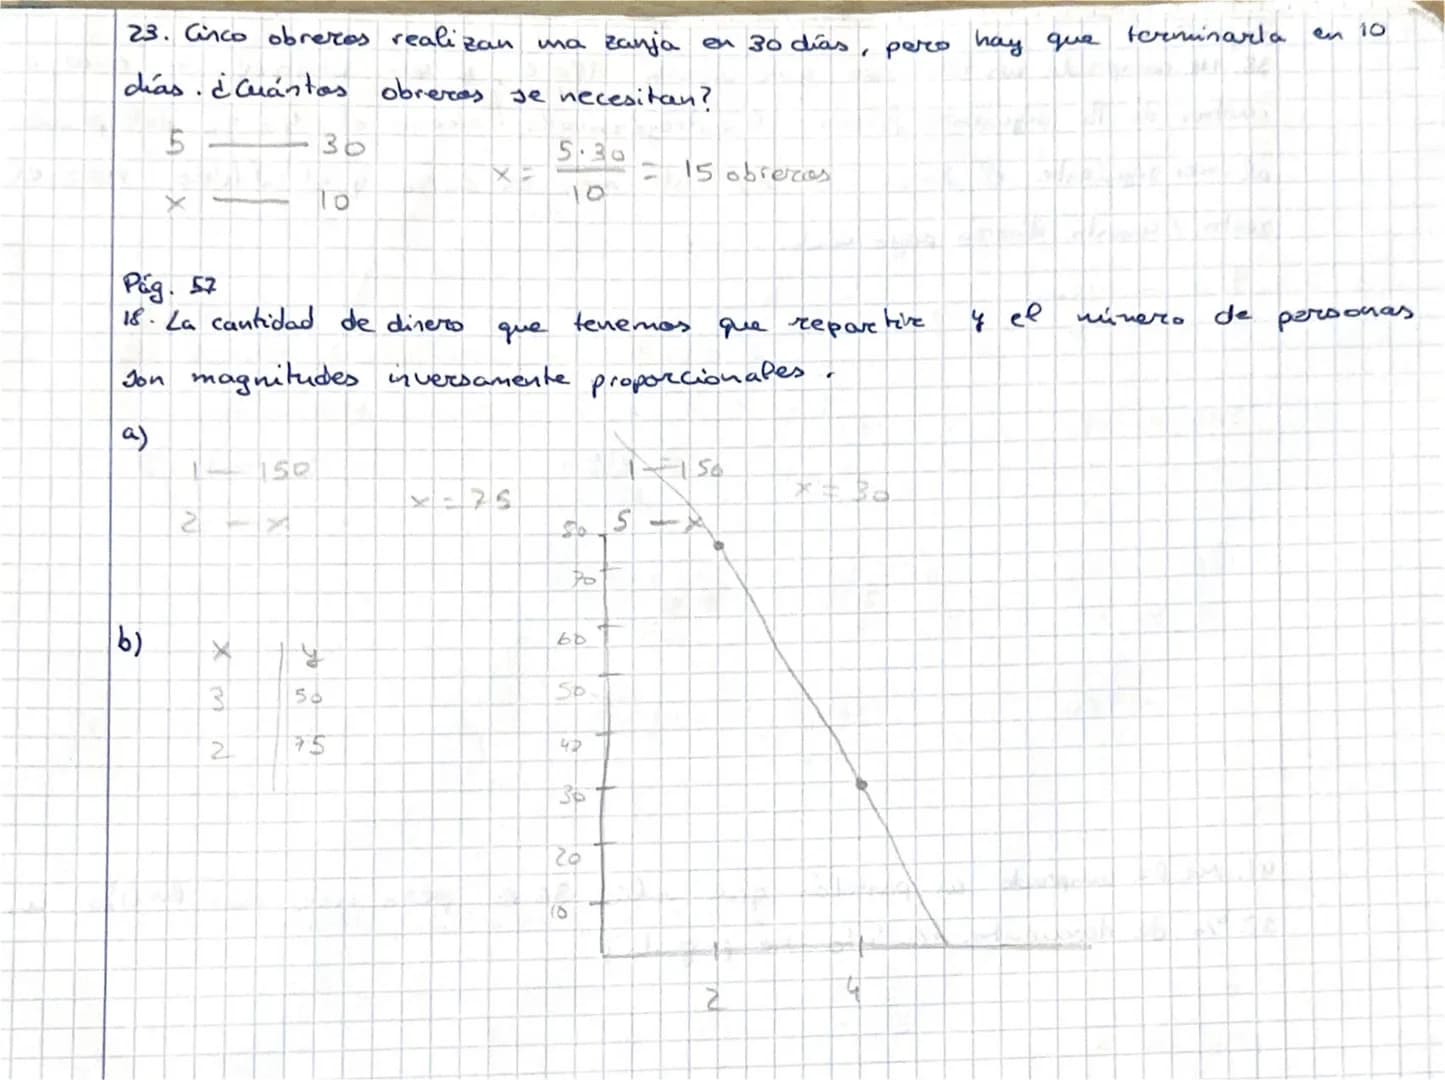 23. Cinco obreros realizan una zanja en 30 días, pero hay que terminarla en 10
días. ¿Cuántos obreros se necesitan?
5 — 30
x — 10
x = 5·30 / 10 = 15 obreros
Pág. 57
18. La cantidad de dinero que tenemos que repartir y el número de personas
son magnitudes inversamente proporcionales.
a)
1 — 150
2 — x
x = 75
1 — 150
5 — x
x = 30
b)
x | y
3 | 50
2 | 75
80
70
60
50
40
30
20
10
2 4